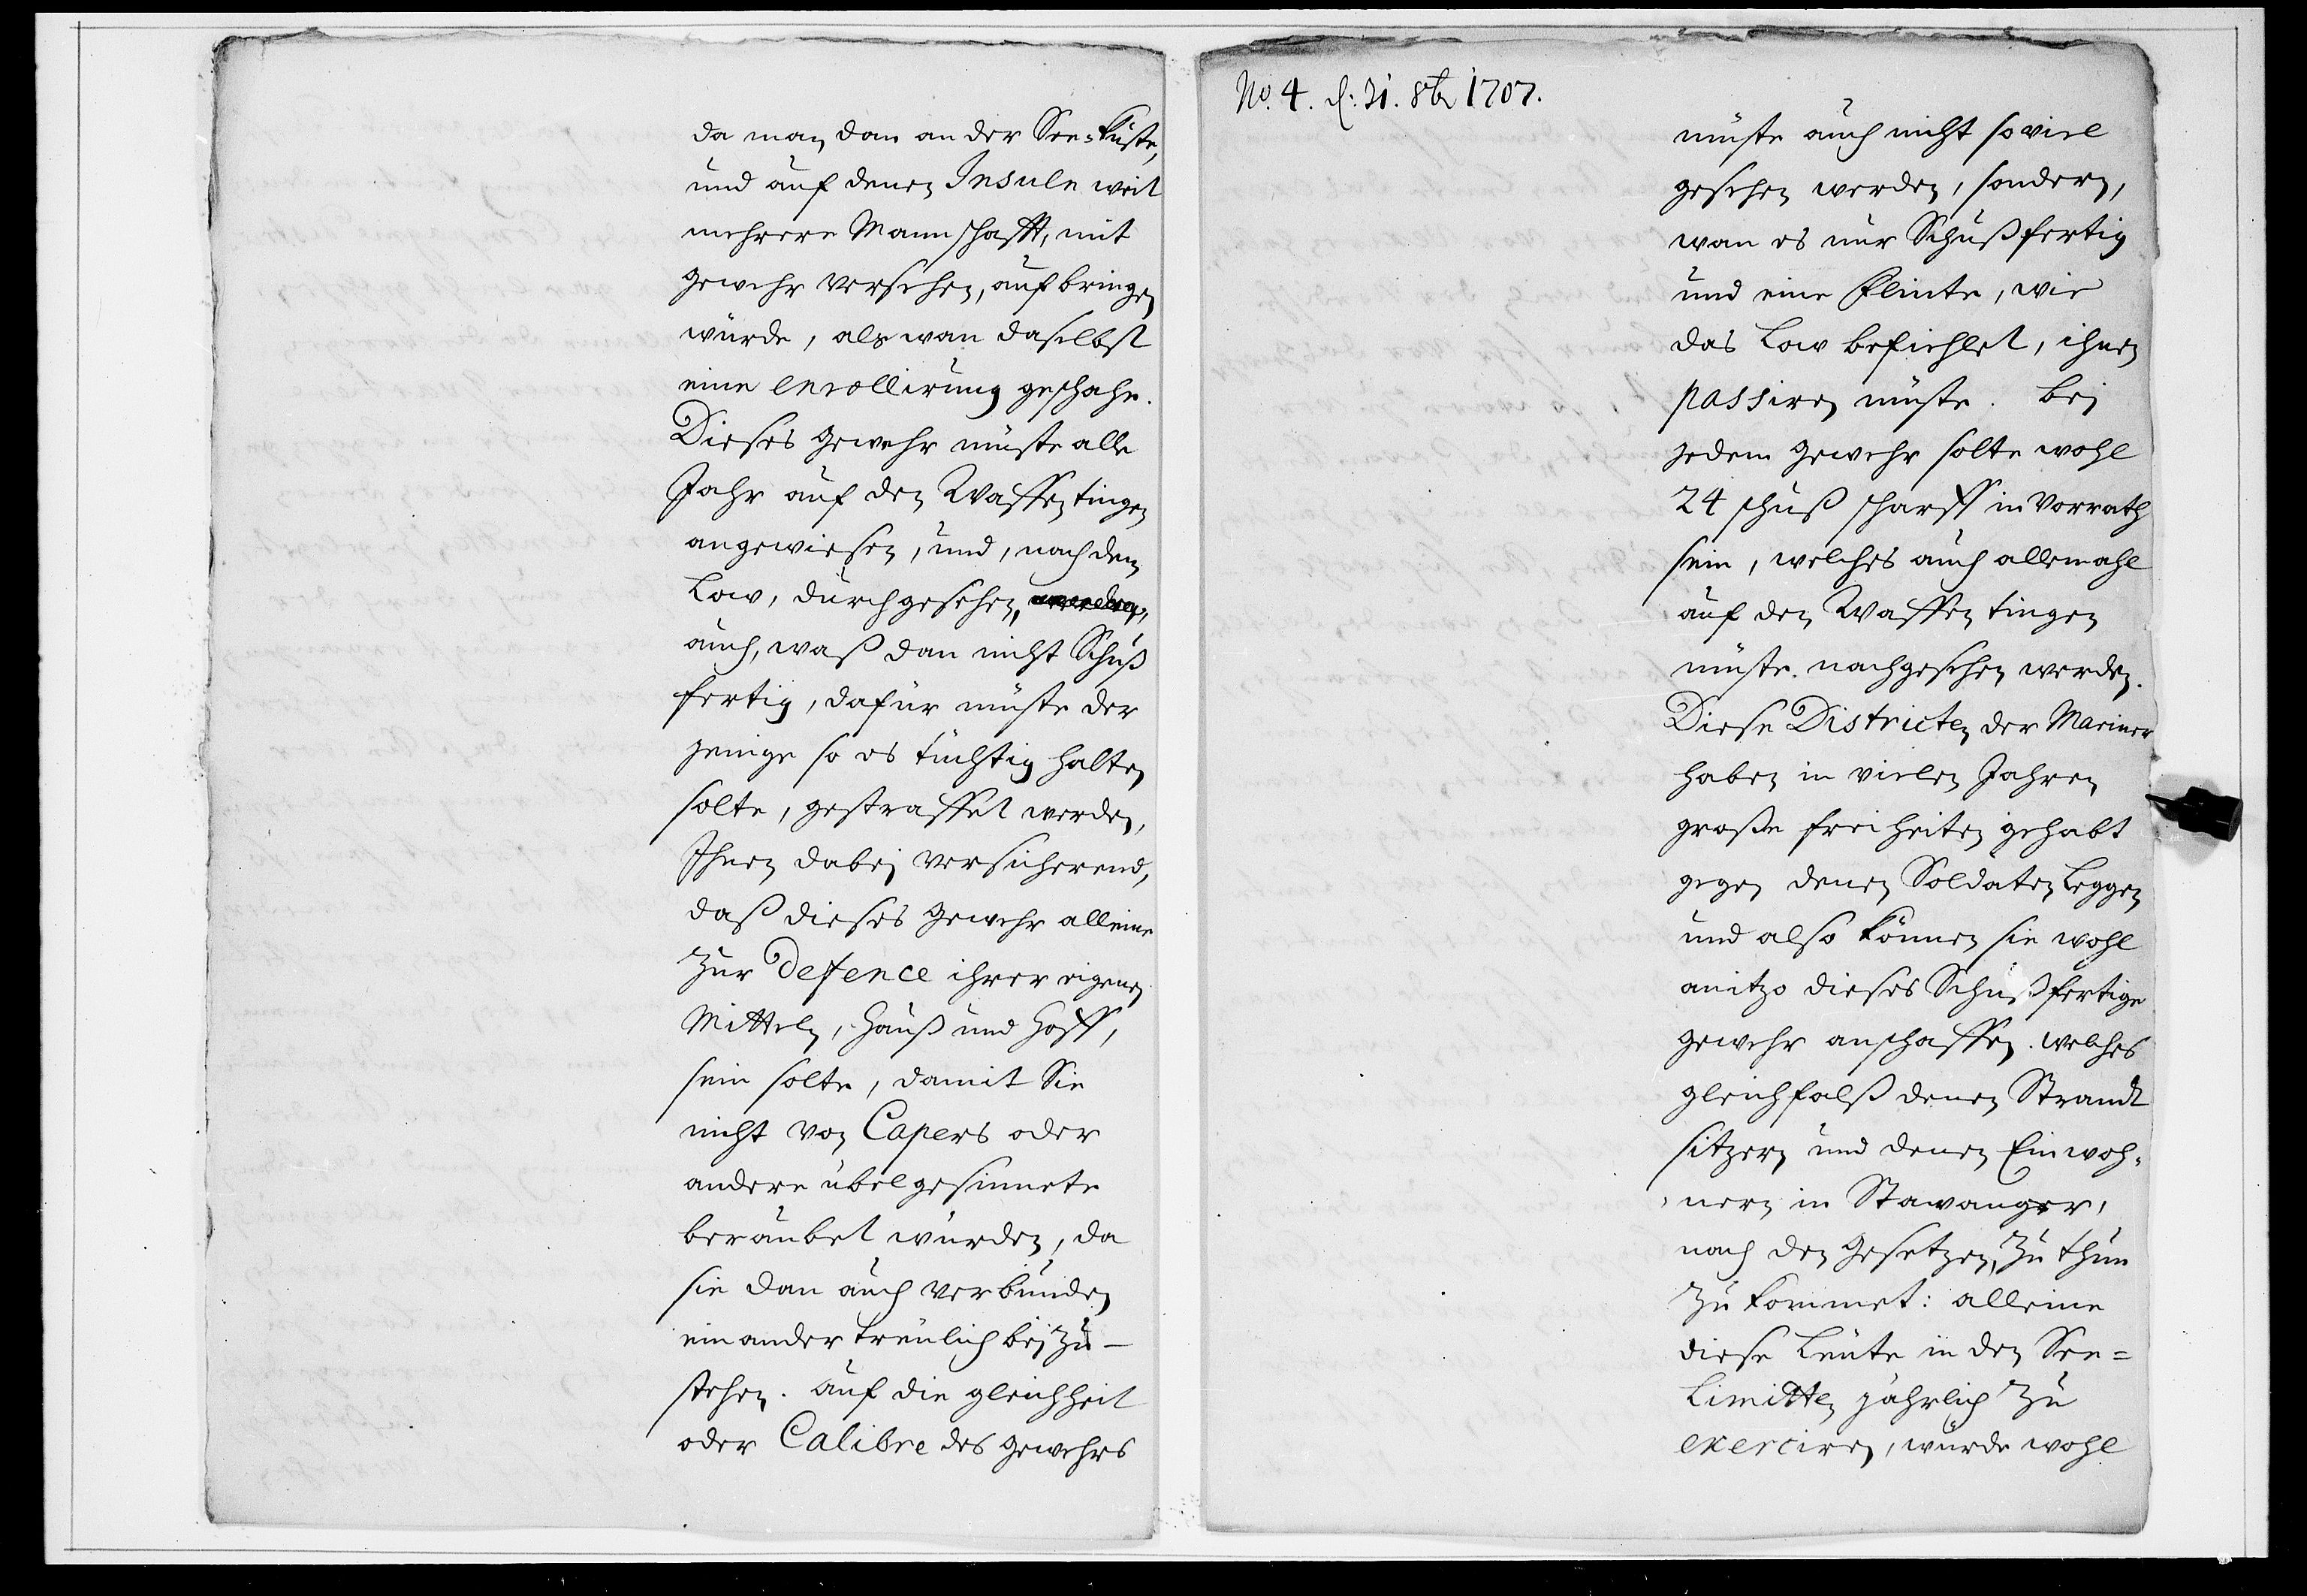 da man dan an der See-Küste,
und auf denen Insulen weit
mehrere Mannschafft, mit
gewehr versehen, aufbringen
würde, als wan daselbst
eine enrollirung geschehe.
Dieses gewehr müste alle
Jahr auf den Waffentingen
angewiesen, und, nach dem
Low, durchgesehen, werden,
auch, waß dan nicht Schuß
fertig, dafür müste der
jenige so es tüchtig halten
solte, gestraffet werden,
Ihnen dabej versicherend,
daß dieses gewehr alleine
zur Defence ihrer eigenen
Mitteln, Hauß und Hoff,
sein solte, damit Sie
nicht von Capers oder
andere übelgesinnete
beraubet würden, da
sie dan auch verbunden
einander treulich bej zu-
stehen. auf die gleichheit
oder Calibre des gewehrs
No. 4. d: 31. 8br 1707.
müste auch nicht so viel
gesehen werden, sondern,
wan es nur Schußfertig
und eine Flinte, wie
das Low befiehlet, ihnen
passiren müste. Bej
jedem gewehr solte wohl
24 schuß scharff in Vorrath
sein, welches auch allemahl
auf den Waffentingen
müste nachgesehen werden.
Diese Districten der Mariner
haben in vielen Jahren
große freiheiten gehabt
gegen denen Soldaten Leggen
und also können sie wohl
anitzo dieses Schußfertige
gewehr anschaffen. welches
gleichfalß denen Strandt
sitzern und denen Einwoh-
nern in Stawanger,
nach den Gesetzen, zu thun
zu kommet: alleine
diese Leute in den See=
Limitten jährlich zu
exerciren, würde wohl